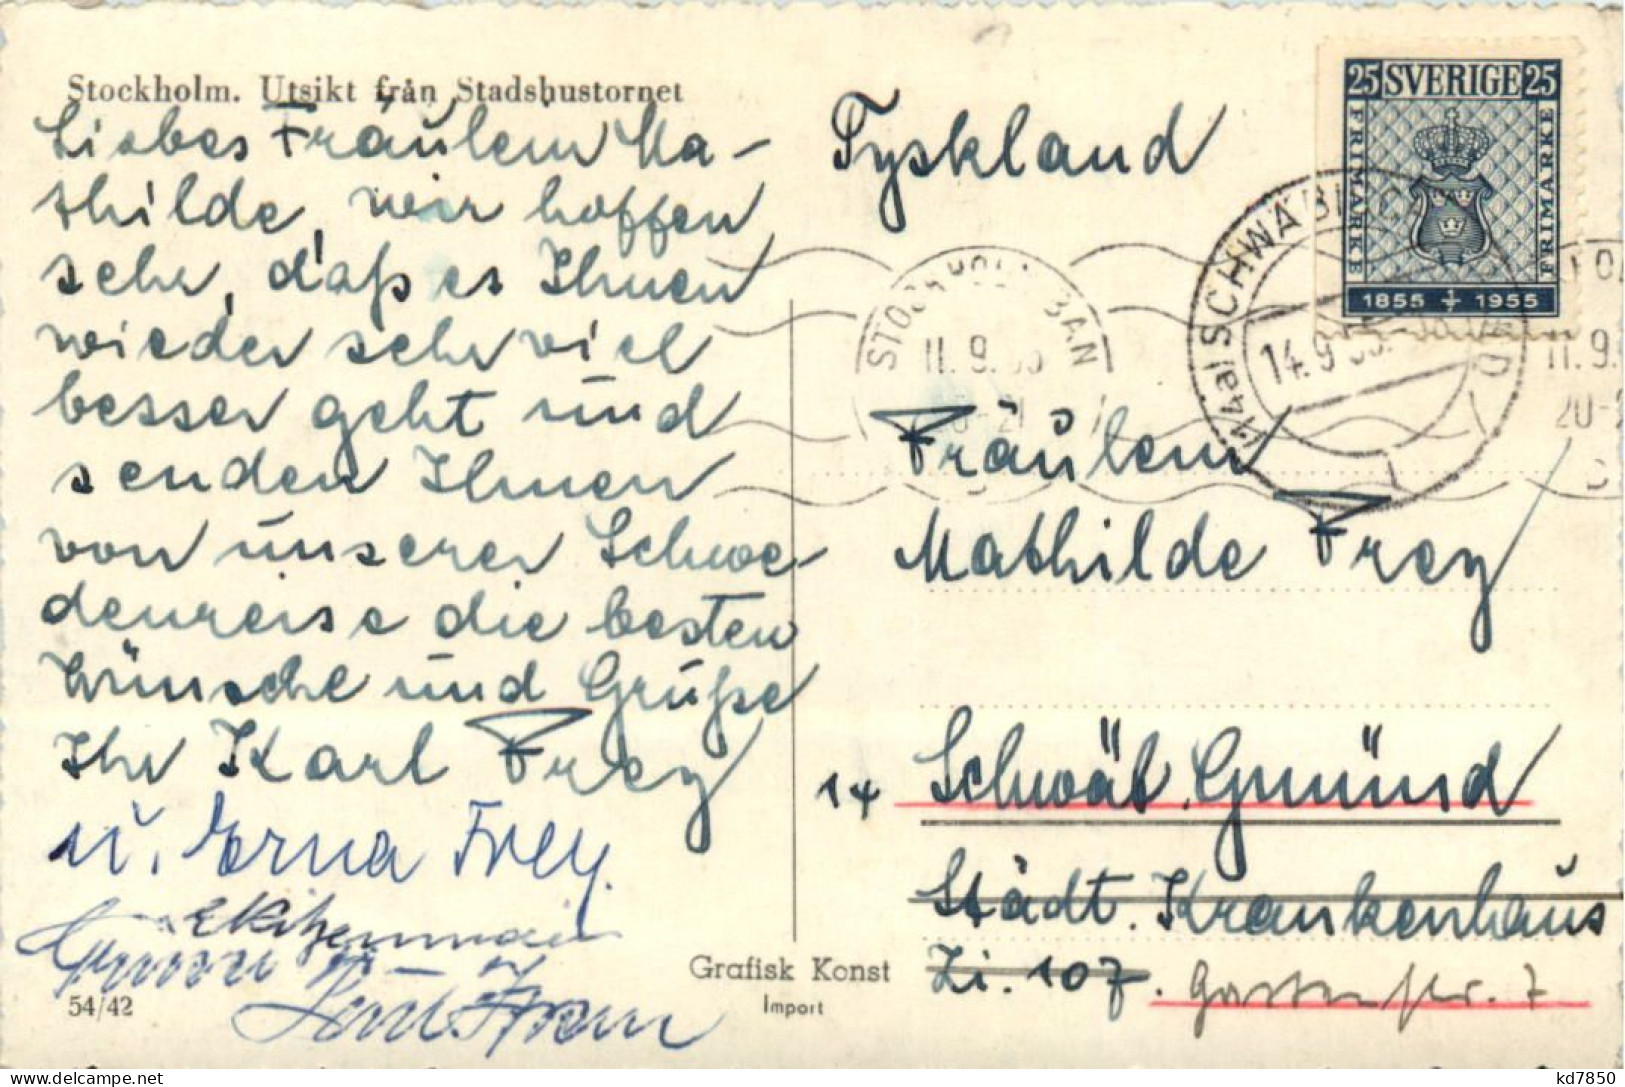 Stockholm. Utsikt från Stadshustornet
Liebes Fräulein Ma-
thilde, wir hoffen
sehr, daß es Ihnen
wieder sehr viel
besser geht und
senden Ihnen
von unserer Schwe-
denreise die besten
Wünsche und Grüße
Ihr Karl Frey
u. Erna Frey.
54/42
Grafisk Konst
Import
Tyskland
25 SVERIGE 25
FRIMÄRKE
FRIMÄRKE
1855 1955
STOCKHOLM BAN
11.9.55
(14a) SCHWÄBISCH GMÜND
14.9.55
11.9.
Fräulein
Mathilde Frey
14 Schwäb. Gmünd
Städt. Krankenhaus
Zi. 107. Gartenstr. 7
kd7850